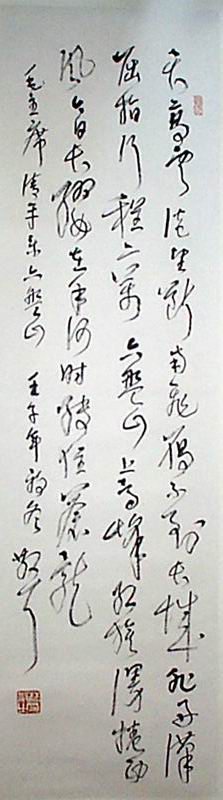 天高雲淡望斷南飛雁不到长城非好漢
屈指行程二萬六盤山上高峰红旗漫捲西
风今日长纓在手何时縛住蒼龍
毛主席清平乐六盤山 壬子年初冬